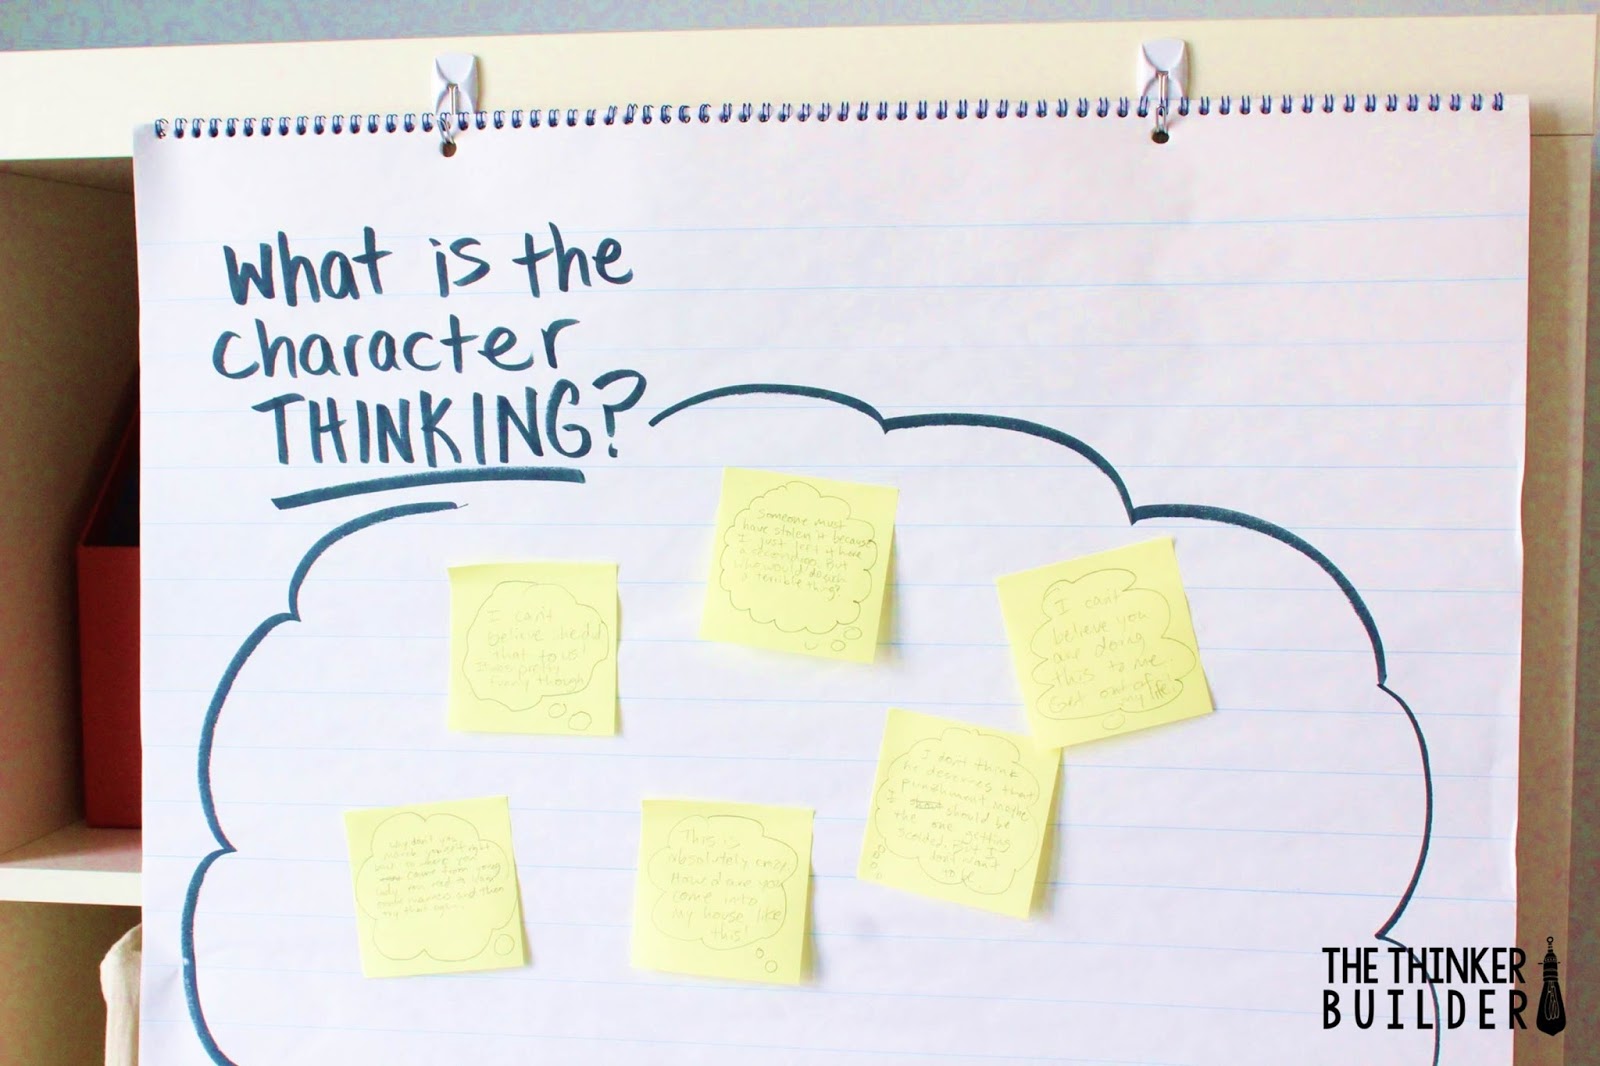 What is the
character
THINKING?
Someone must
have stolen it because
I just left it here
a second ago. But
who would do such
a terrible thing?
I can't
believe she did
that to us!
It was pretty
funny though.
I can't
believe you
are doing
this to me.
Get out of
my life!
I don't think
he deserves that
punishment. Maybe
I should be
the one getting
scolded, but I
don't want
to be.
Why don't you
march
back to where you
came from young
lady,
manners and then
try that again.
This is
absolutely crazy.
How dare you
come into
my house like
this!
THE THINKER
BUILDER